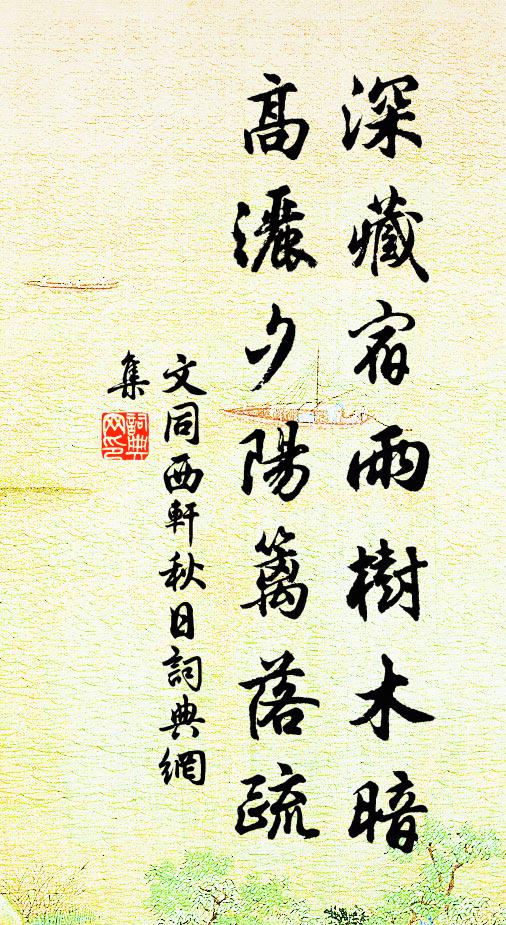 深藏宿雨樹木暗
高灑夕陽籬落疏
文同西軒秋日詞典網
集
詞典
网印